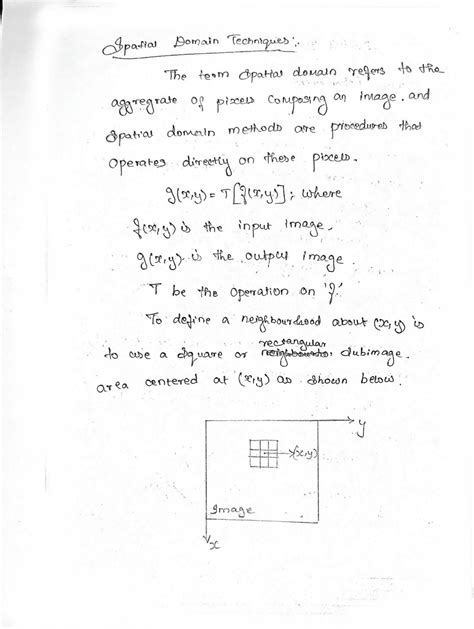 Spatial Domain Techniques:
The term Spatial domain refers to the
aggregrate of pixels composing an image. and
Spatial domain methods are procedures that
operates directly on these pixels.
g(x,y) = T[f(x,y)]; where
f(x,y) is the input image.
g(x,y) is the output image.
T be the operation on 'f'.
To define a neighbourhood about (x,y) is
rectangular
to use a square or subimage.
area centered at (x,y) as shown below.
y
(x,y)
Image
x